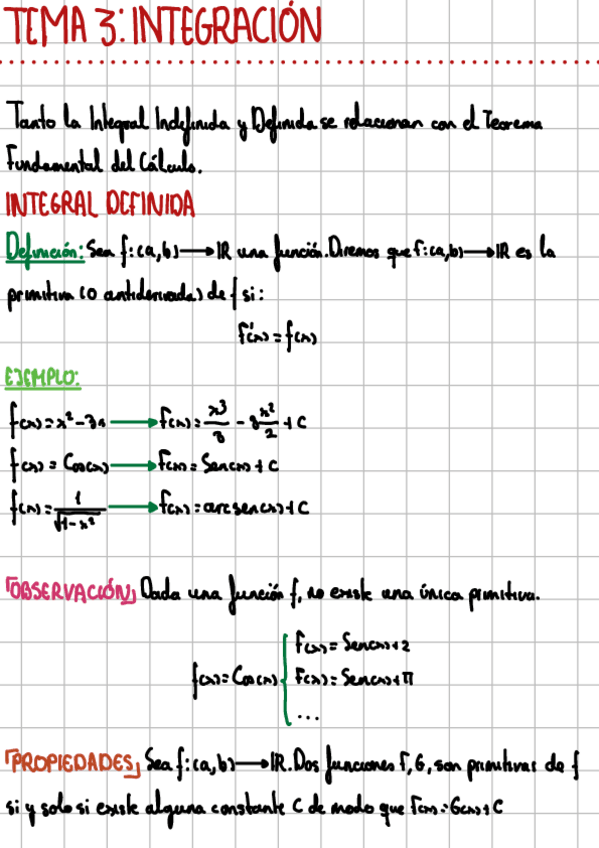 TEMA 3: INTEGRACIÓN
Tanto la Integral Indefinida y Definida se relacionan con el Teorema
Fundamental del Cálculo.
INTEGRAL DEFINIDA
Definición: Sea f:(a,b)→IR una función. Diremos que F:(a,b)→IR es la
primitiva (o antiderivada) de f si:
F'(x) = f(x)
EJEMPLO:
f(x) = x² - 3x → F(x) = x³/3 - 3 x²/2 + C
f(x) = Cos(x) → F(x) = Sen(x) + C
f(x) = 1/√(1-x²) → F(x) = arcsen(x) + C
「OBSERVACIÓN」 Dada una función f, no existe una única primitiva.
F(x) = Sen(x) + 2
f(x) = Cos(x) { F(x) = Sen(x) + π
...
「PROPIEDADES」 Sea f:(a,b)→IR. Dos funciones F, G, son primitivas de f
si y solo si existe alguna constante C de modo que F(x) = G(x) + C